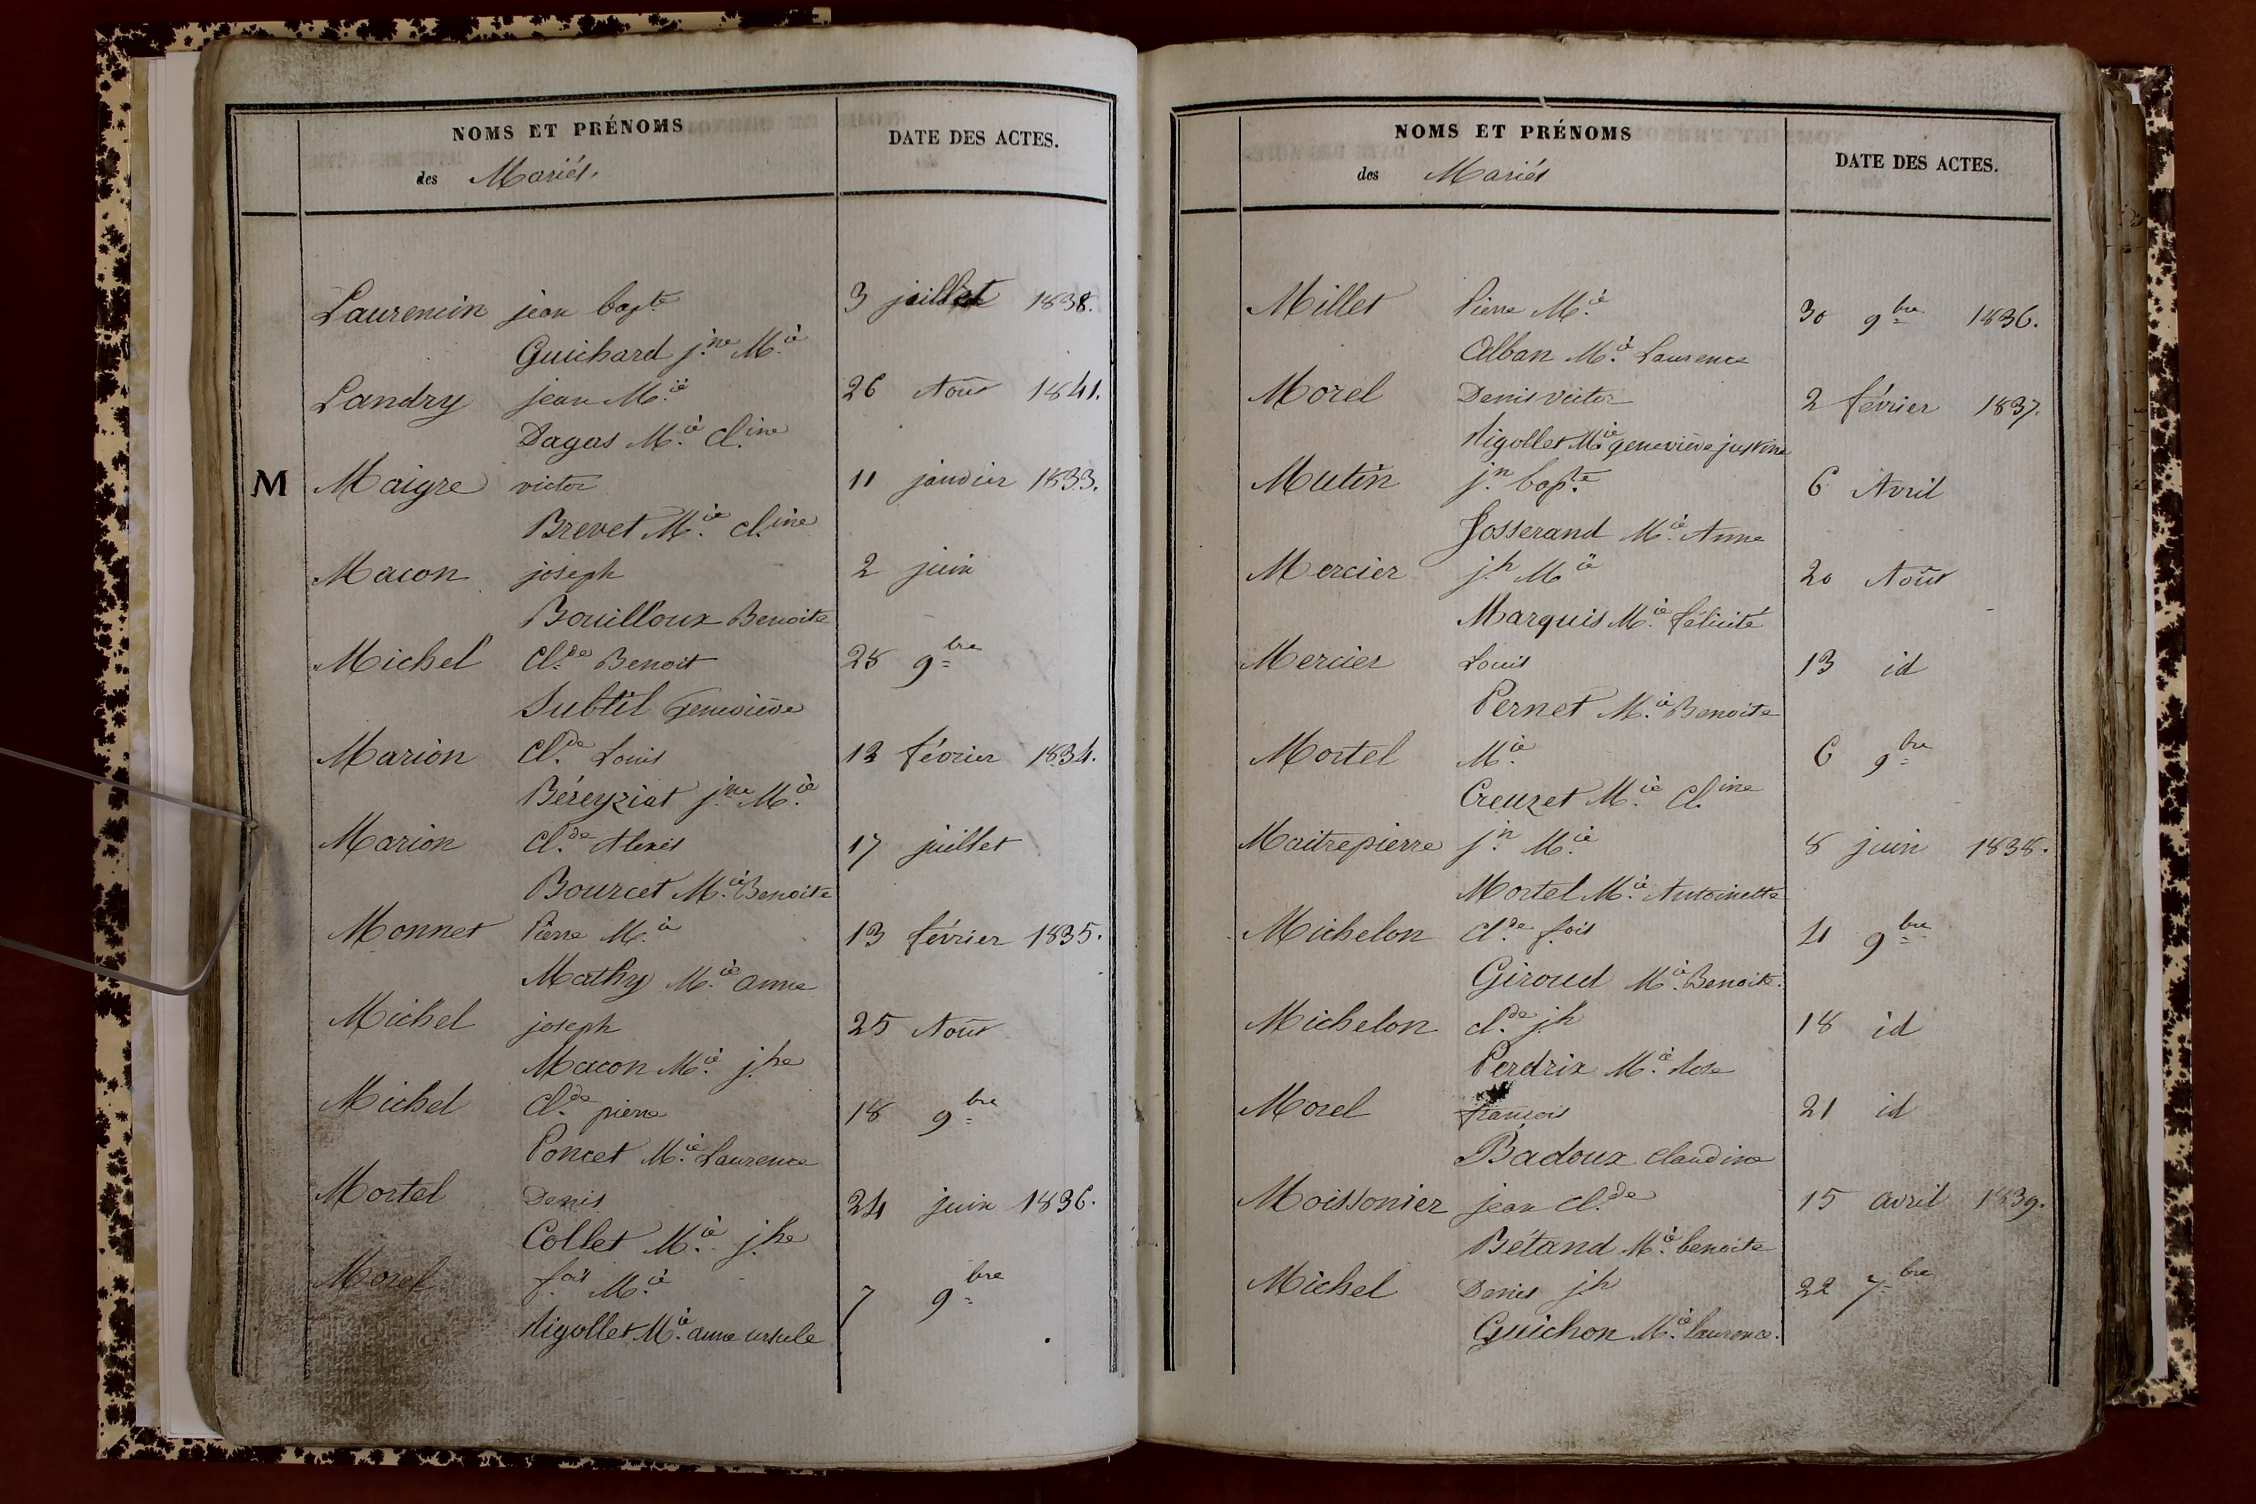 NOMS ET PRÉNOMS
des Mariés.
DATE DES ACTES.
Laurencin jean bapte 3 juillet 1838.
Guichard j.ne M.ie
Landry jean M.ie 26 Août 1841.
Dagas M.ie Cl.ine
M Maigre victor 11 janvier 1833.
Brevet M.ie cl.ine
Macon joseph 2 juin
Bouilloux Benoite
Michel Cl.de Benoit 28 9bre
Subtil Geneviève
Marion Cl.de Louis 13 février 1834.
Béreyziat j.ne M.ie
Marion Cl.de Alexis 17 juillet
Bourcet M.ie Benoite
Monnet Pierre M.ie 13 février 1835.
Mathy M.ie anne
Michel joseph 25 Août
Macon M.ie j.he
Michel Cl.de pierre 18 9bre
Poncet M.ie Laurence
Mortel Denis 24 juin 1836.
Collet M.ie j.he
Morel f.ois M.ie 7 9bre
Nigollet M.ie anne ursule
NOMS ET PRÉNOMS
des Mariés
DATE DES ACTES.
Millet Pierre M.ie 30 9bre 1836.
Alban M.ie Laurence
Morel Denis victor 2 février 1837.
Nigollet M.ie geneviève justine
Mutin j.n bapte 6 Avril
Josserand M.ie Anne
Mercier j.h M.ie 20 Août
Marquis M.ie félicité
Mercier Louis 13 id
Pernet M.ie Benoite
Mortel M.ie 6 9bre
Creuzet M.ie Cl.ine
Maitrepierre j.n M.ie 8 juin 1838.
Mortel M.ie Antoinette
Michelon Cl.de f.ois 4 9bre
Giroud M.ie Benoite.
Michelon cl.de j.h 18 id
Perdrix M.ie Rose
Morel françois 21 id
Badoux Claudine
Moissonier jean cl.de 15 avril 1839.
Bétand M.ie benoite
Michel Denis j.h 22 7bre
Guichon M.ie laurence.